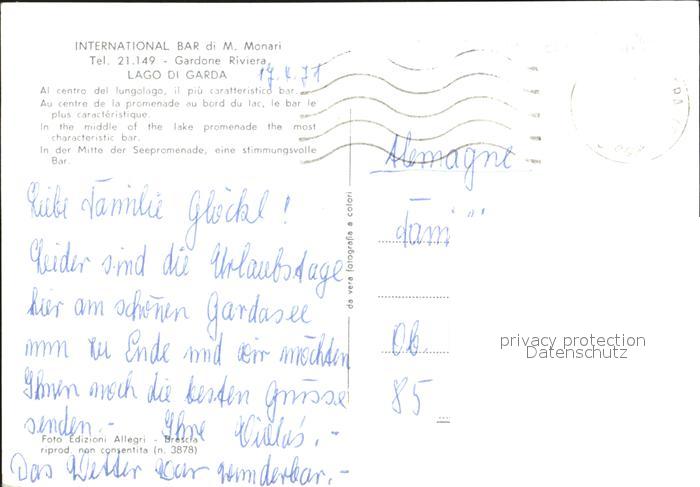 INTERNATIONAL BAR di M. Monari
Tel. 21.149 - Gardone Riviera
LAGO DI GARDA
Al centro del lungolago, il più caratteristico bar.
Au centre de la promenade au bord du lac, le bar le
plus caractéristique.
In the middle of the lake promenade the most
characteristic bar.
In der Mitte der Seepromenade, eine stimmungsvolle
Bar.
Liebe Familie Glöckl!
Leider sind die Urlaubstage
hier am schönen Gardasee
nun zu Ende und wir möchten
Ihnen noch die besten Grüsse
senden.- Ihre
Das Wetter war wunderbar.-
Foto Edizioni Allegri - Brescia
riprod. non consentita (n. 3878)
da vera fotografia a colori
Alemagne
Fam
Ob.
85
privacy protection
Datenschutz